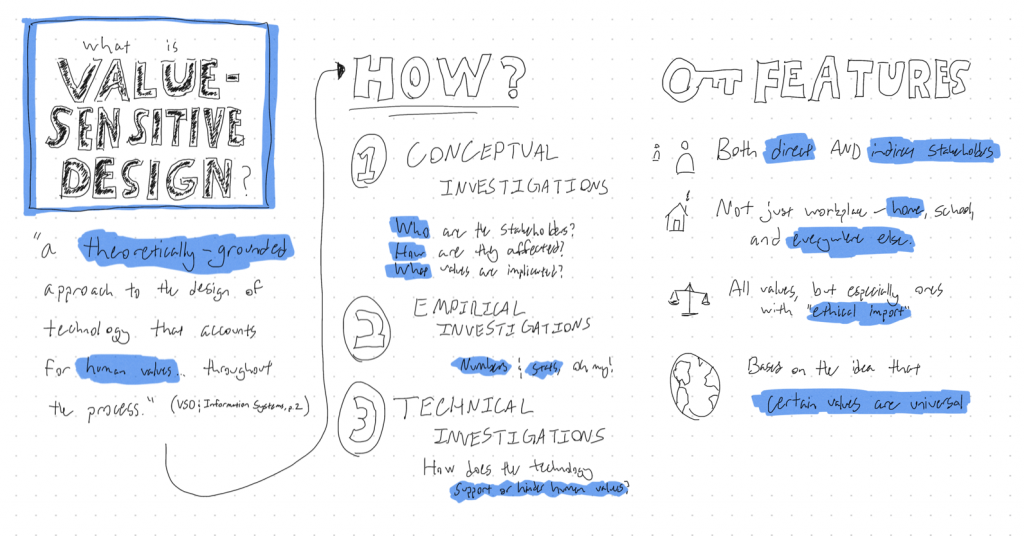 what is
VALUE-
SENSITIVE
DESIGN?
"a theoretically-grounded
approach to the design of
technology that accounts
for human values... throughout
the process." (VSD & Information Systems, p.2)
HOW?
1 CONCEPTUAL
INVESTIGATIONS
Who are the stakeholders?
How are they affected?
What values are implicated?
2 EMPIRICAL
INVESTIGATIONS
Numbers & stats, oh my!
3 TECHNICAL
INVESTIGATIONS
How does the technology
support or hinder human values?
FEATURES
Both direct AND indirect stakeholders
Not just workplace - home, school,
and everywhere else.
All values, but especially ones
with "ethical import"
Based on the idea that
certain values are universal